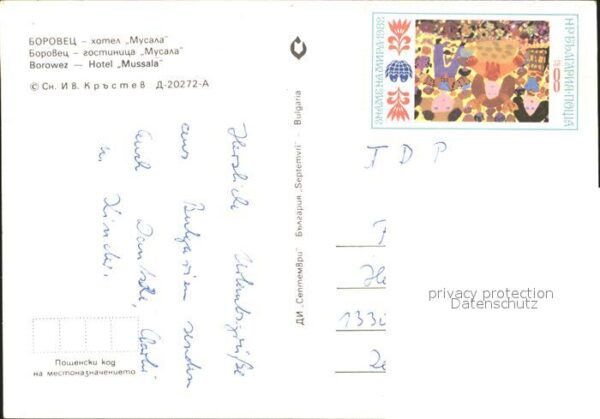 БОРОВЕЦ – хотел „Мусала"
Боровец – гостиница „Мусала"
Borowez — Hotel „Mussala"
© Сн. Ив. Кръстев Д-20272-А
Herzliche Urlaubsgrüße
aus Bulgarien senden
Euch
u. Kinder
Пощенски код
на местоназначението
ДИ „Септември" България „Septemvri" - Bulgaria
ЗНАМЕ НА МИРА 1982
НР БЪЛГАРИЯ·ПОЩА
8
J D P
133
privacy protection
Datenschutz